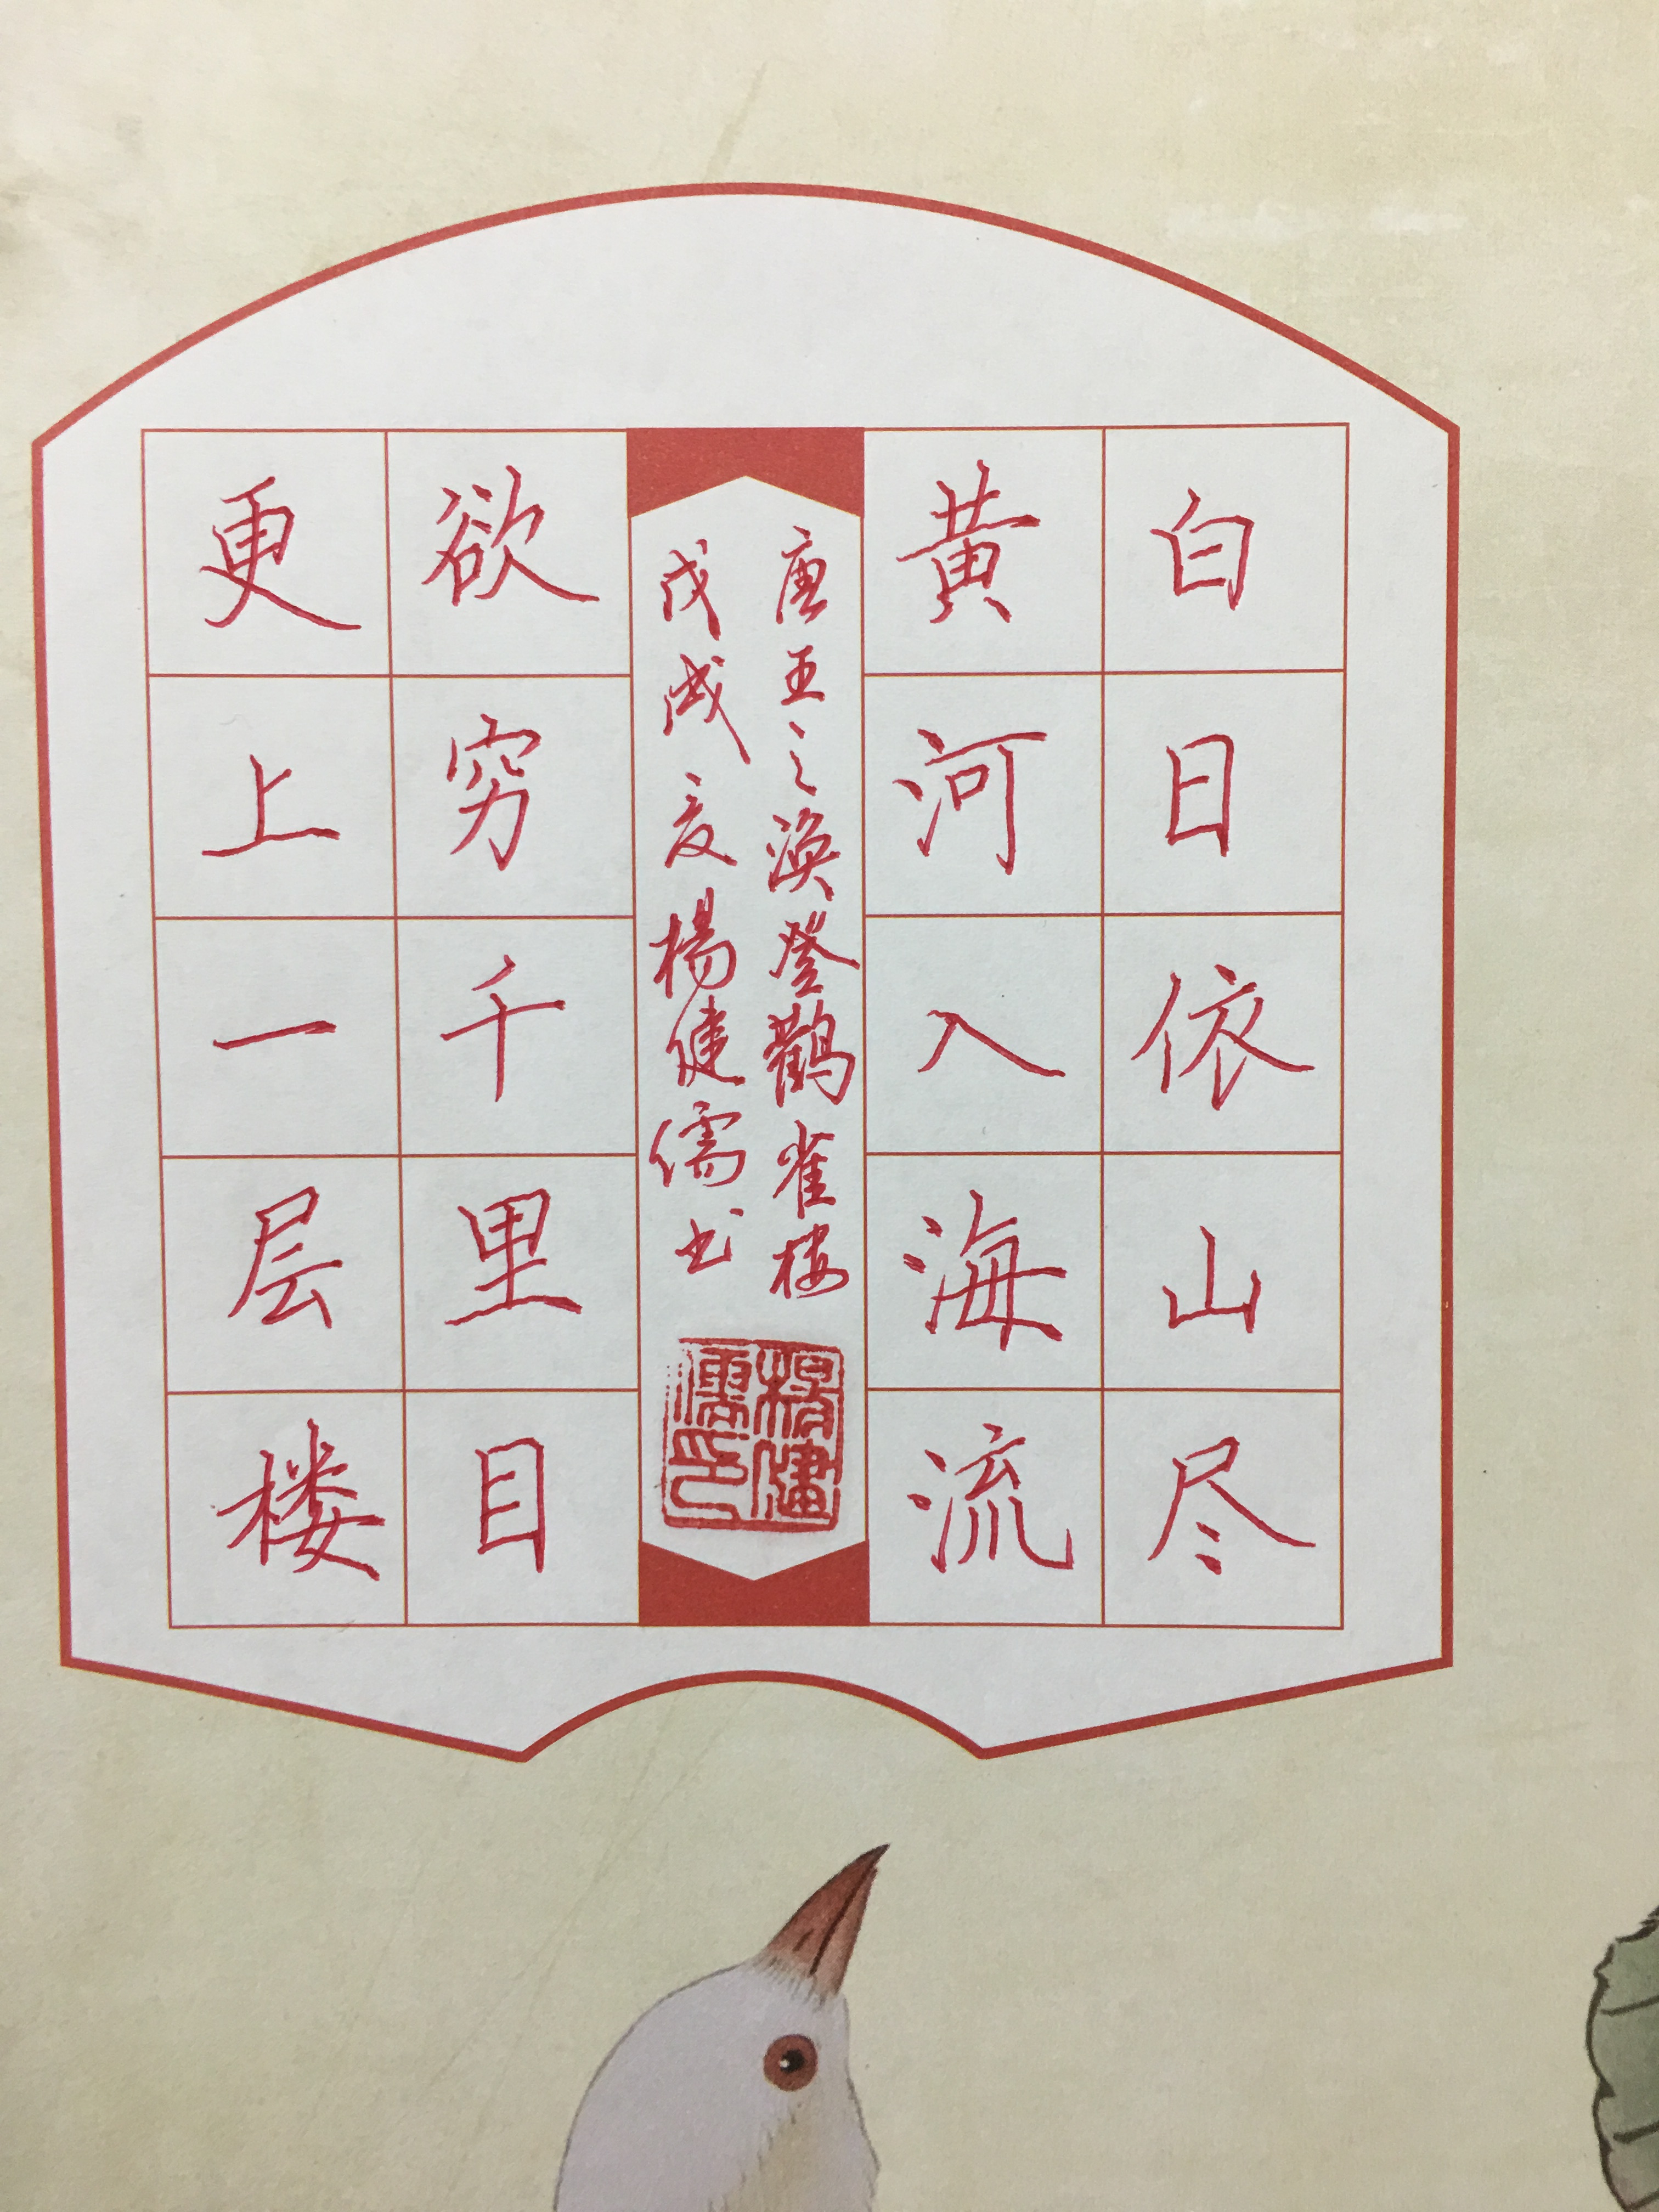 白日依山尽
黄河入海流
唐王之涣登鹳雀楼
戊戌夏楊健儒书
楊健儒印
欲穷千里目
更上一层楼